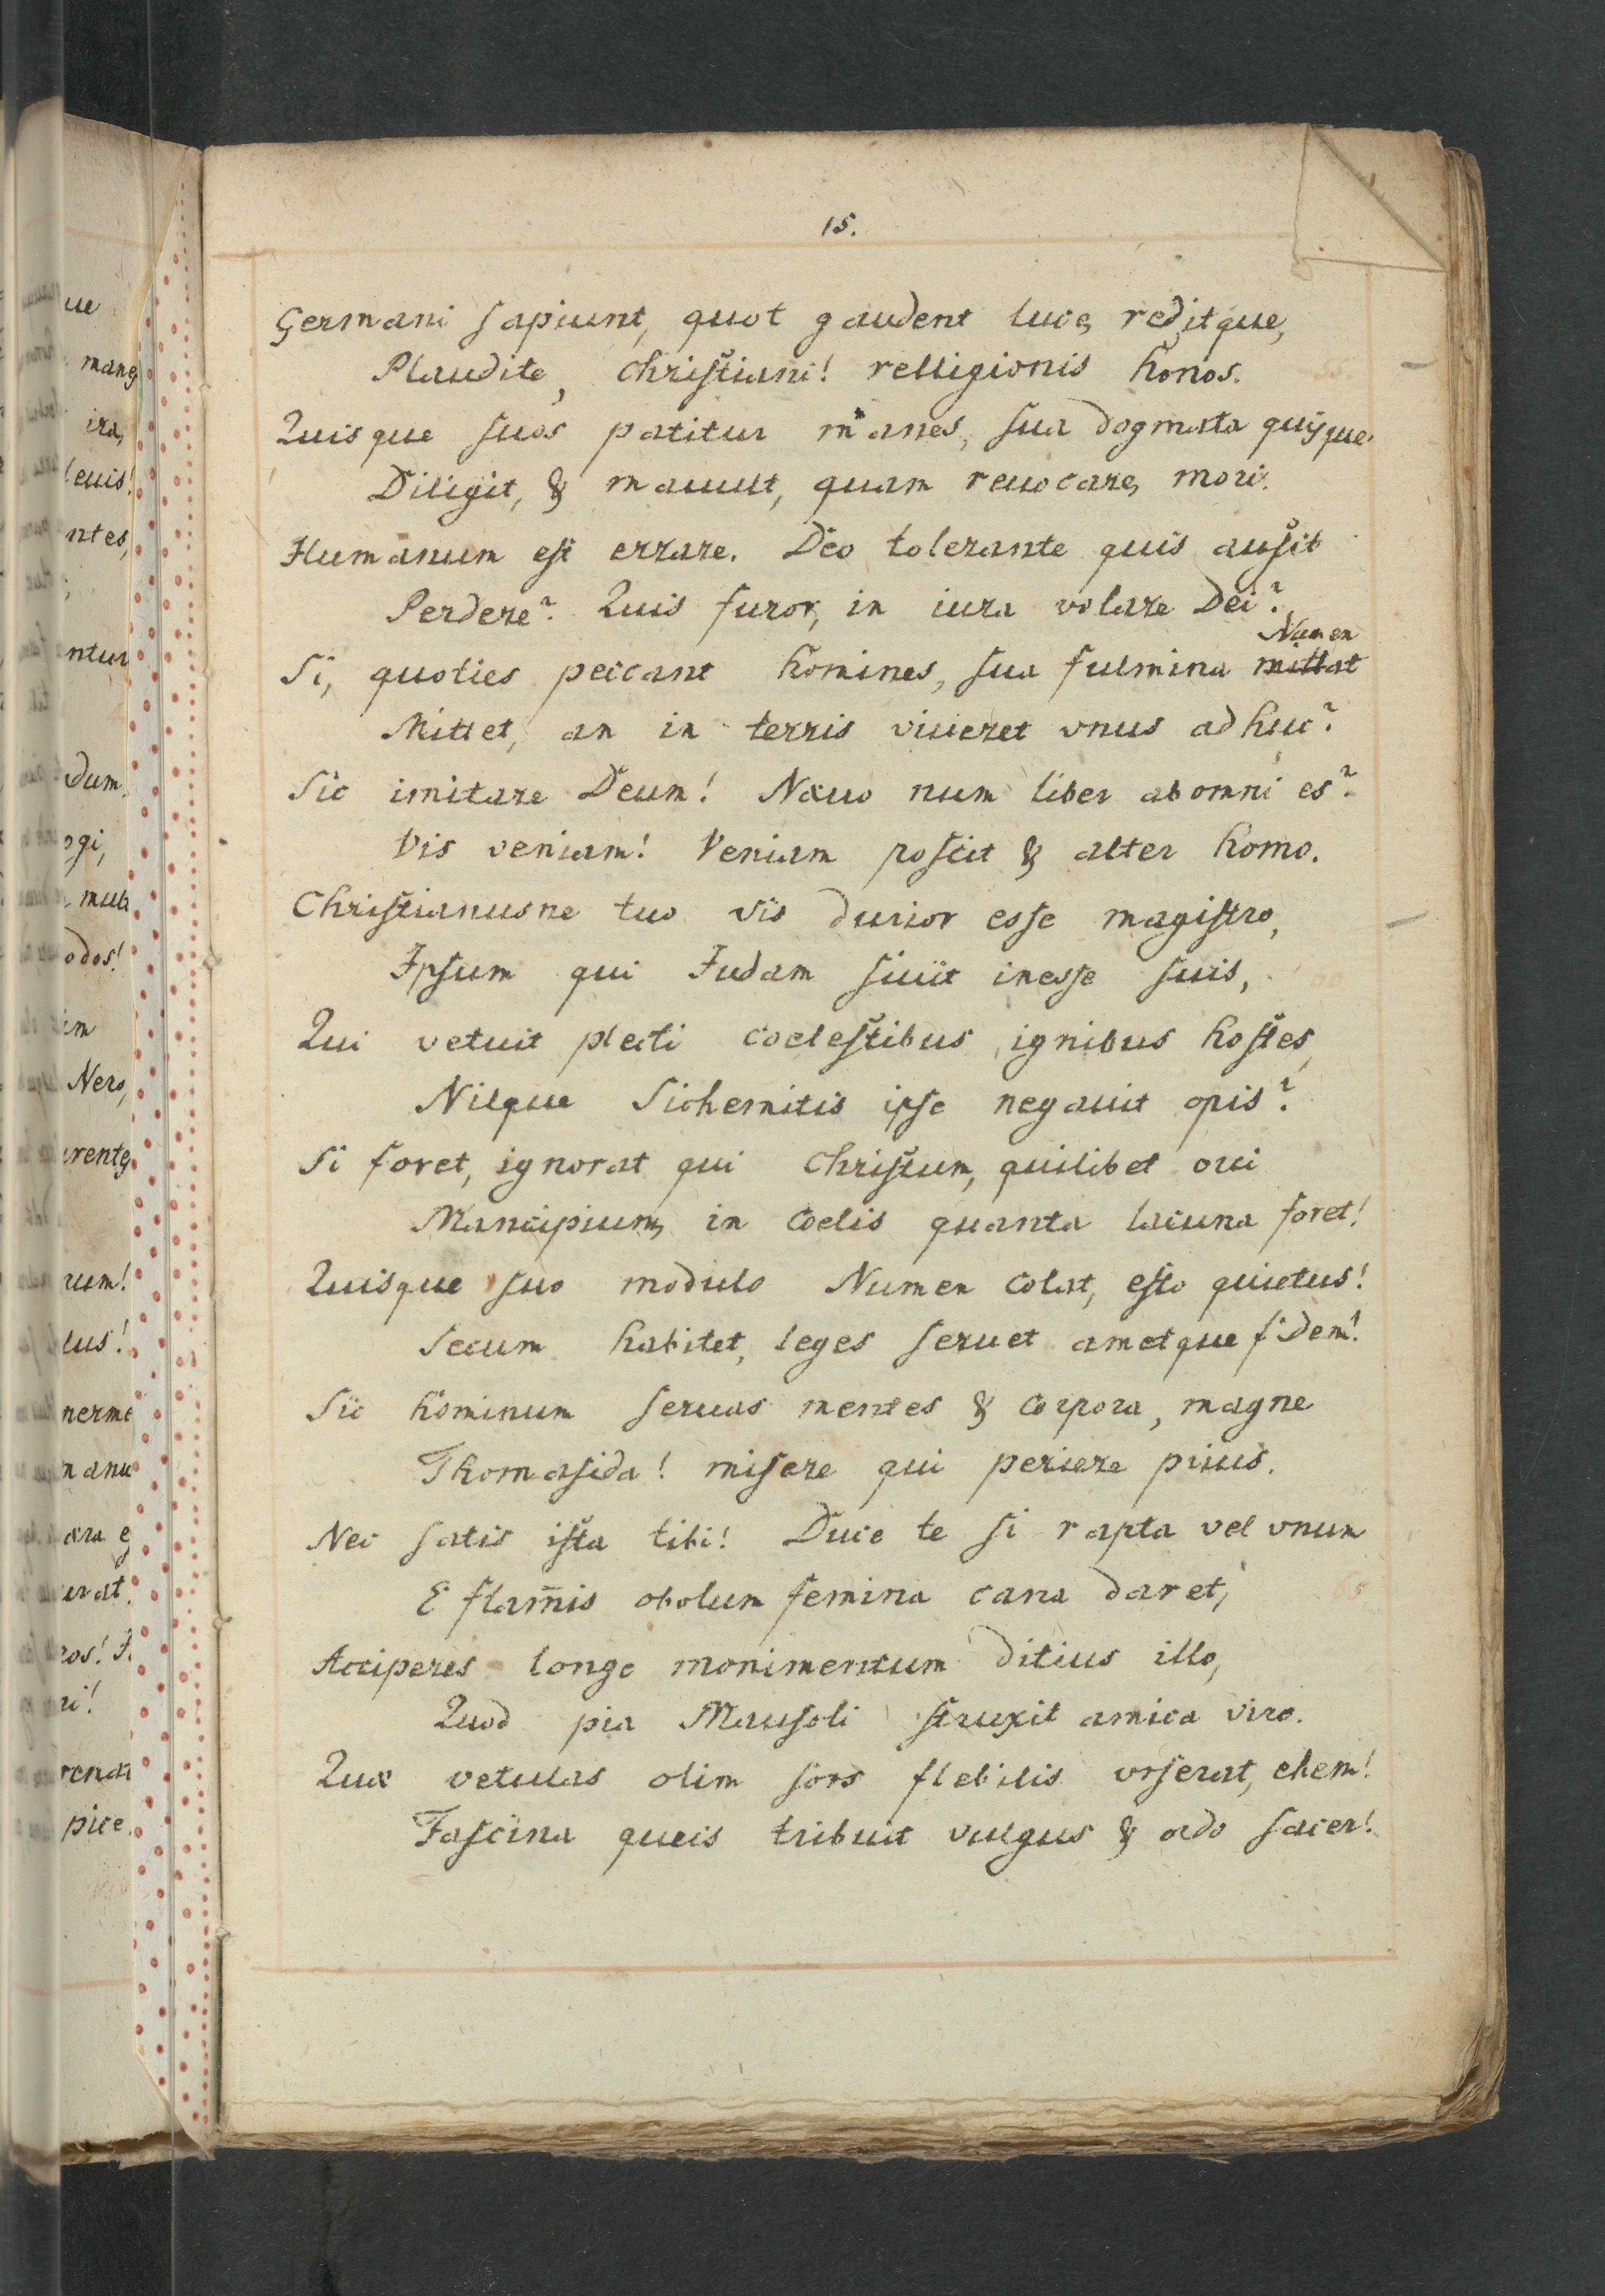 15.
Germani sapiunt, quot gaudent luce, reditque,
Plaudite, Christiani! relligionis honos.
Quisque suos patitur manes, sua dogmata quisque
Diligit, & mauult, quam reuocare, mori.
Humanum est errare. Deo tolerante quis ausit
Perdere? Quis furor, in iura volare Dei?
Numen
Si, quoties peccant homines, sua fulmina mittat
Mittet, an in terris viueret vnus adhuc?
Sic imitare Deum! Næuo num liber ab omni es?
Vis veniam! Veniam poscit & alter homo.
Christianusne tuo vis durior esse magistro,
Ipsum qui Judam siuit inesse suis,
Qui vetuit plecti coelestibus ignibus hostes,
Nilque Sichemitis ipse negauit opis?
Si foret, ignorat qui Christum, quilibet orci
Mancipium, in coelis quanta lacuna foret!
Quisque suo modulo Numen colat, esto quietus!
Secum habitet, leges seruet ametque fidem!
Sic hominum seruas mentes & corpora, magne
Thomasida! misere qui periere prius.
Nec satis ista tibi! Duce te si rapta vel vnum
E flam̄is obolum femina cana daret,
Acciperes longe monimentum ditius illo,
Quod pia Mausoli struxit amica viro.
Quæ vetulas olim sors flebilis vrserat, ehem!
Fascina queis tribuit vulgus & ordo sacer!